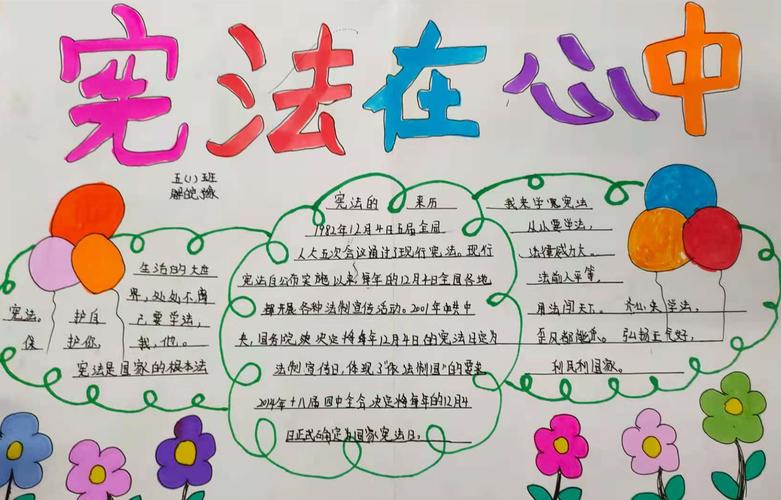 宪法在心中
五(1)班
生活的大世
界,处处不离
宪法。护自
己要学法,
保护你,我,他。
宪法是国家的根本法
宪法的来历
1982年12月4日五届全国
人大五次会议通过了现行宪法。现行
宪法自公布实施以来每年的12月4日全国各地
都开展各种法制宣传活动。2001年中共中
央,国务院决定将每年12月4日的宪法日定为
法制宣传日,体现了"依法制国"的要求
2014年十八届四中全会决定将每年的12月4
日正式确定为国家宪法日。
我来学宪法
从小要学法,
法律威力大。
法前人平等,
用法闯天下。齐心失学法,
歪风都能杀。弘扬正气好,
利民利国家。